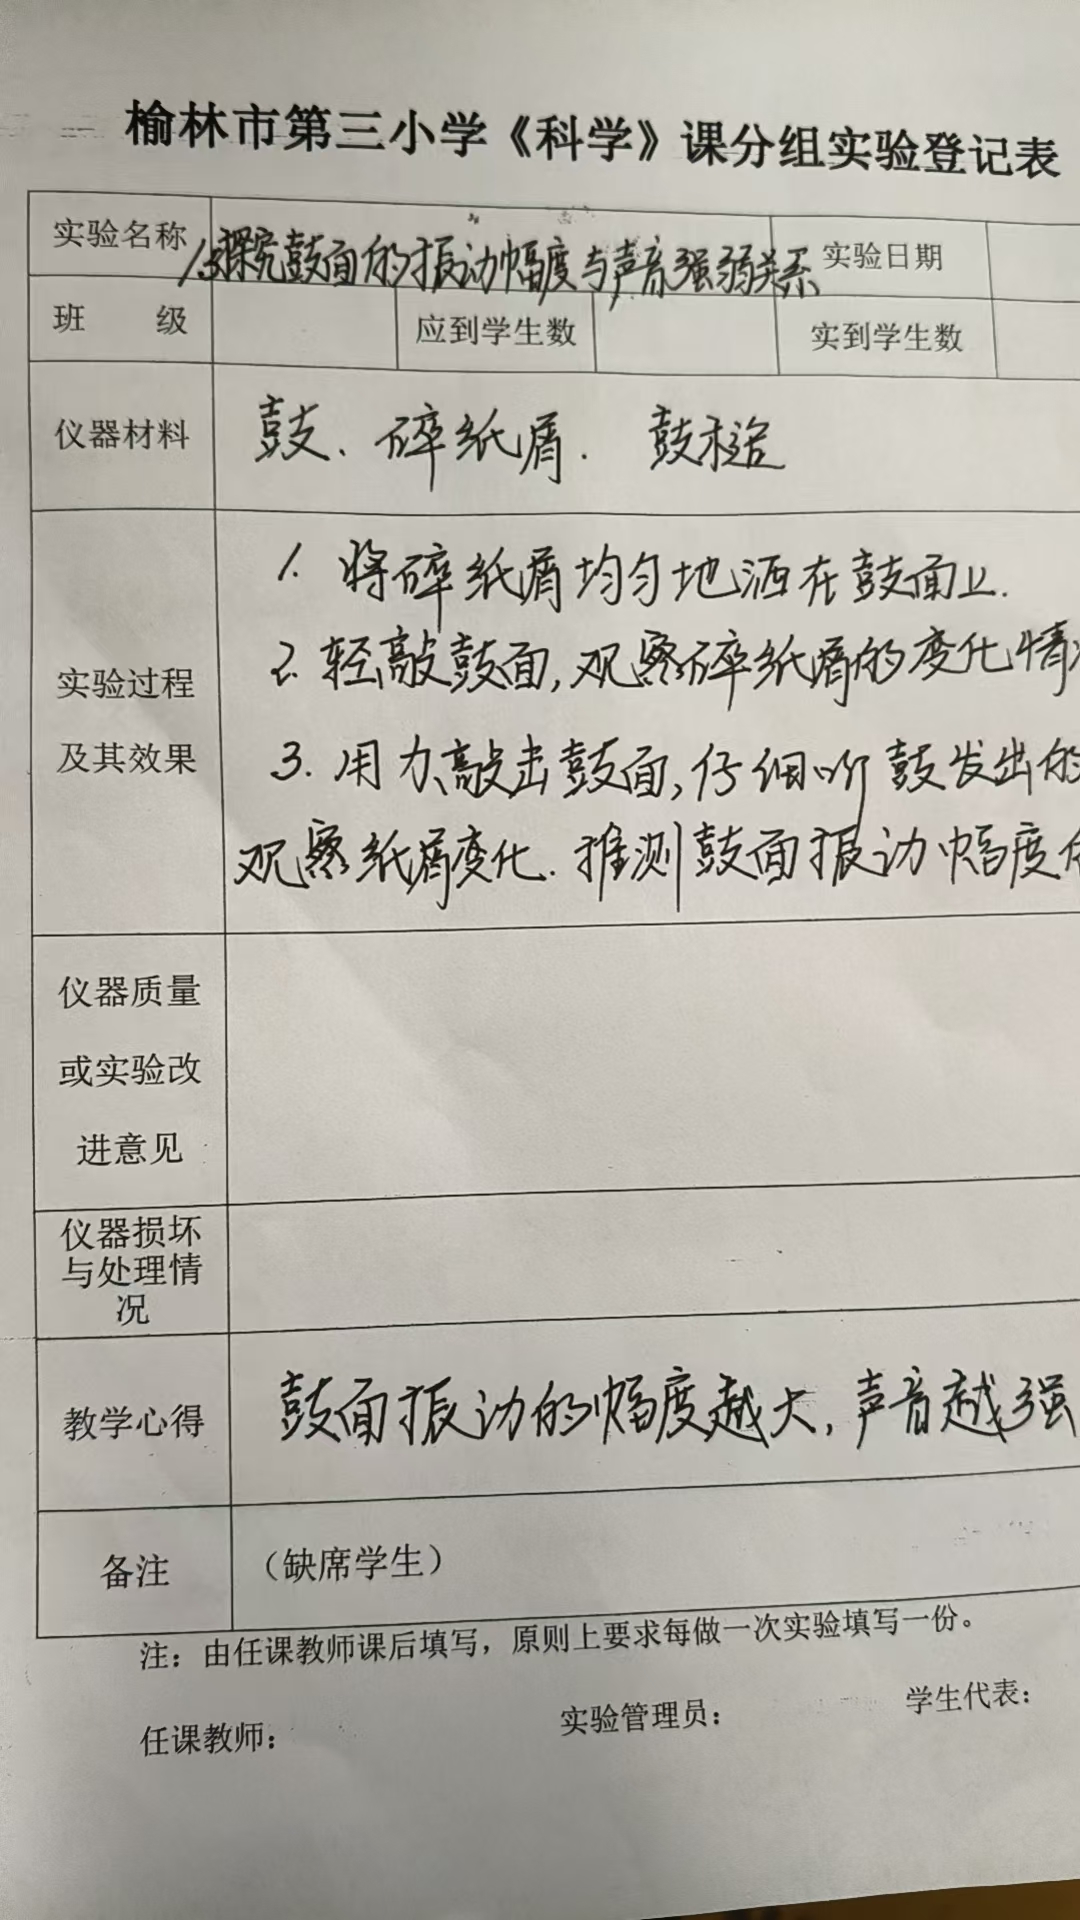 榆林市第三小学《科学》课分组实验登记表
实验名称 探究鼓面的振动幅度与声音强弱关系 实验日期
班 级 应到学生数 实到学生数
仪器材料 鼓、碎纸屑. 鼓槌
1. 将碎纸屑均匀地洒在鼓面上.
2. 轻敲鼓面,观察碎纸屑的变化情
实验过程
及其效果
3. 用力敲击鼓面,仔细听鼓发出的
观察纸屑变化. 推测鼓面振动幅度
仪器质量
或实验改
进意见
仪器损坏
与处理情
况
教学心得 鼓面振动的幅度越大,声音越强
备注 （缺席学生）
注：由任课教师课后填写，原则上要求每做一次实验填写一份。
任课教师： 实验管理员： 学生代表：